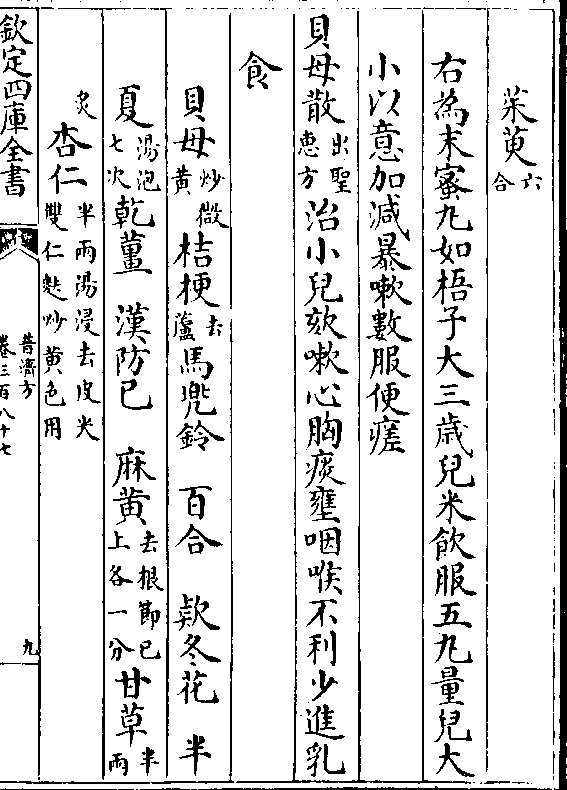 茱萸六合
右為末蜜丸如梧子大三歳兒米飲服五丸量兒大
小以意加減暴嗽數服便瘥
貝母散出聖惠方治小兒欬嗽心胸痰壅咽喉不利少進乳
食
貝母炒微黄桔梗去蘆馬兠鈴 百合 欵冬花 半
夏湯泡七次乾薑 漢防已 麻黄去根節已上各一分甘草半兩
炙杏仁半兩湯浸去皮尖雙仁麩炒黄色用
欽定四庫全書
普濟方
卷三百八十七
九